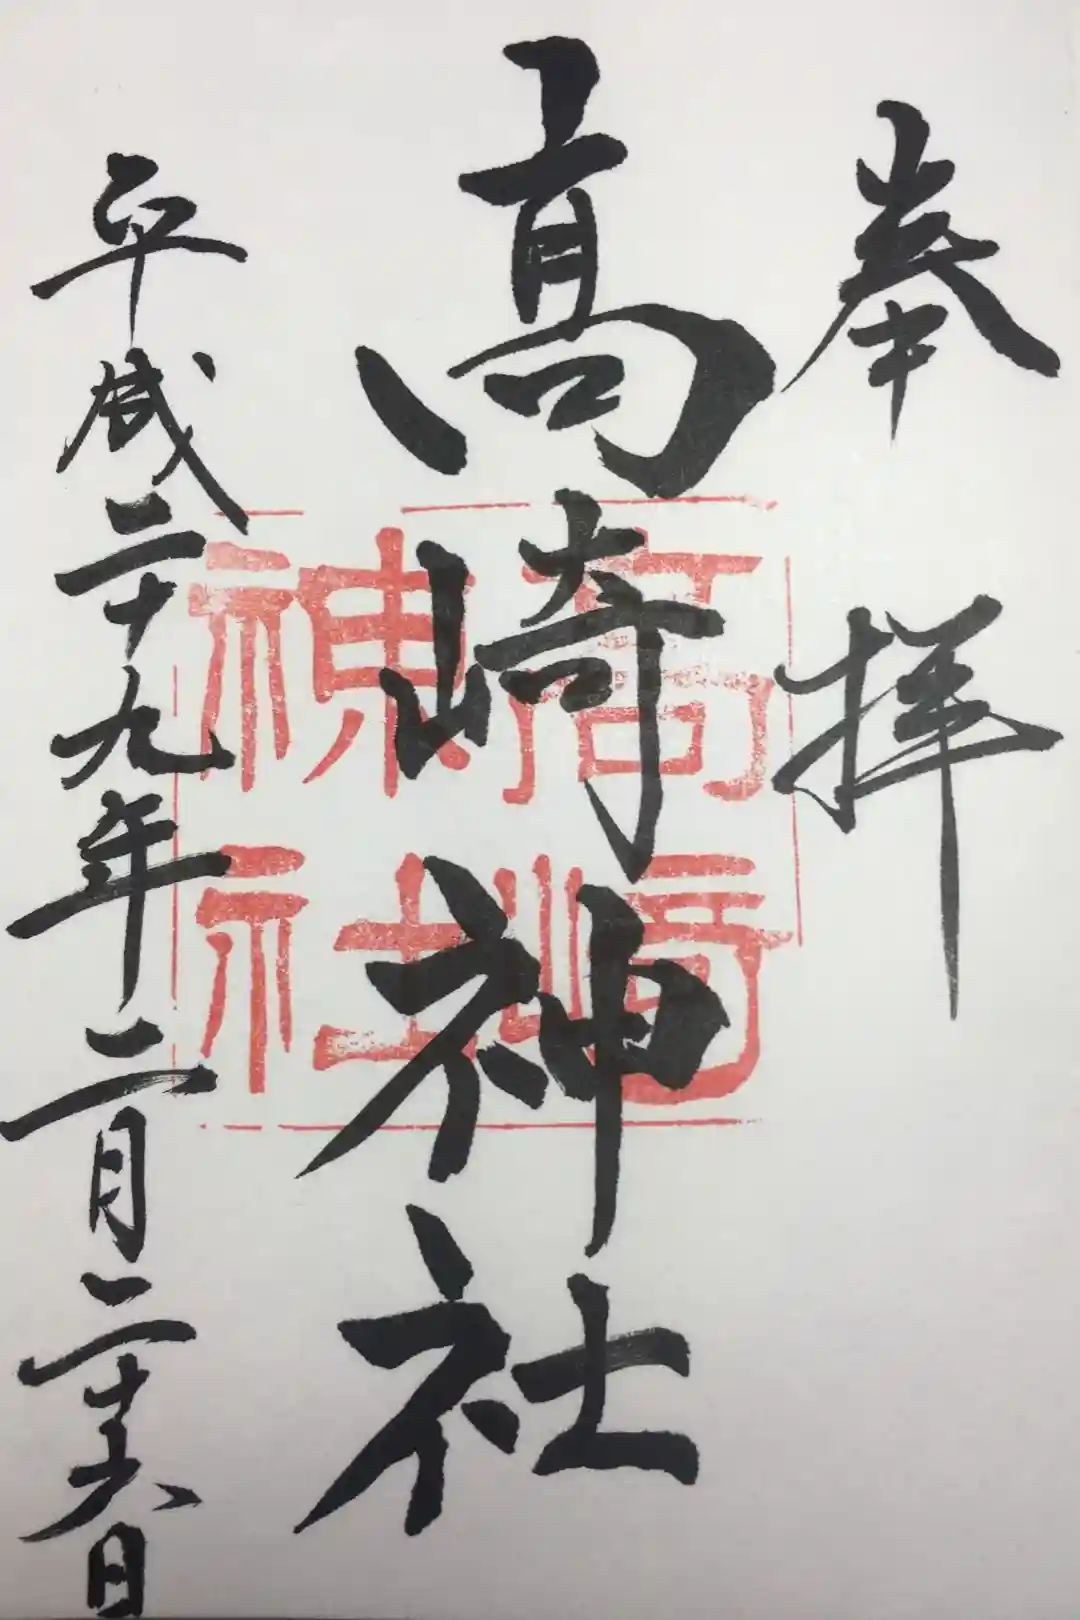 奉拝
髙崎神社
平成二十九年二月二十六日
高崎神社